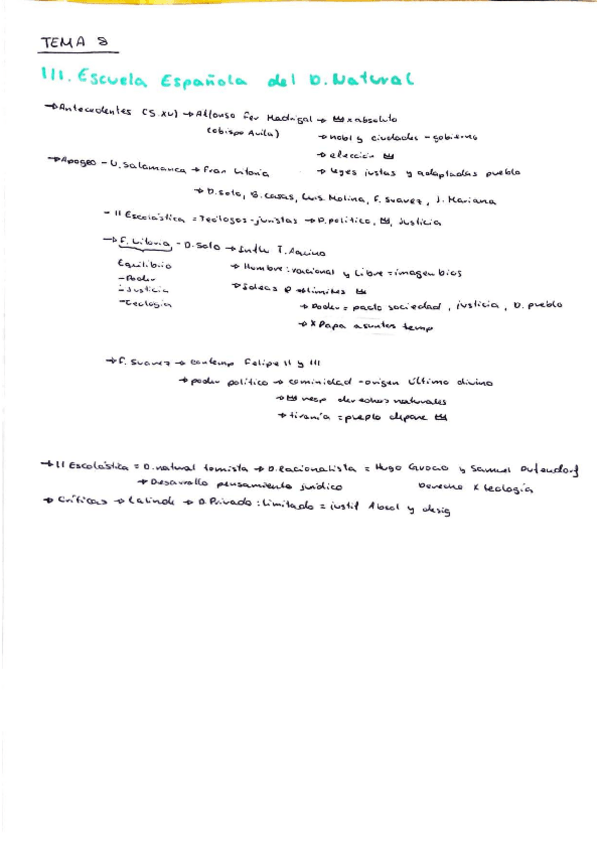 TEMA 8
III. Escuela Española del D. Natural
→ Antecedentes (S.XV) → Alfonso Fer Madrigal → x absoluto
(obispo Avila) → nobl y ciudades - gobierno
→ elección
→ Apogeo - U. Salamanca → Fran Vitoria → leyes justas y adaptadas pueblo
→ D. Soto, B. Casas, Luis Molina, F. Suarez, J. Mariana
- II Escolástica = Teólogos-juristas → D. político, Justicia
→ F. Vitoria - D. Soto → Influ T. Aquino
Equilibrio → Hombre: racional y libre = imagen Dios
- Poder → Ideas límites
- Justicia → Poder = pacto sociedad, justicia, D. pueblo
- Teología → x Papa asuntos temp
→ F. Suarez → contemp Felipe II y III
→ poder político → cominidad - origen último divino
→ resp derechos naturales
→ tiranía = pueblo depone
→ II Escolástica = D. natural tomista → D. Racionalista = Hugo Grocio y Samuel Pufendorf
→ Desarrollo pensamiento jurídico Derecho x teología
→ Críticas → Lalinde → D. Privado: limitado = justif Absol y desig